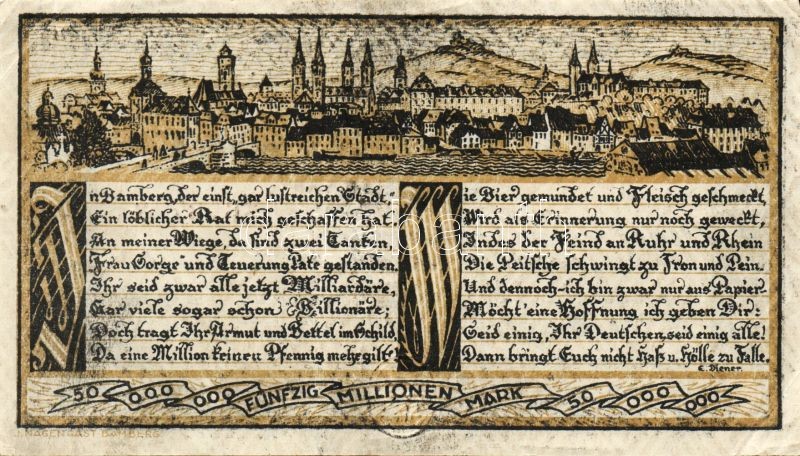 In Bamberg, der einst gar lustreichen Stadt,
Ein löblicher Rat mich geschaffen hat.
An meiner Wiege, da sind zwei Tanten,
Frau Sorge und Teuerung Pate gestanden.
Ihr seid zwar alle jetzt Milliardäre,
Gar viele sogar schon Billionäre;
Doch tragt Ihr Armut und Bettel im Schild,
Da eine Million keinen Pfennig mehr gilt!
Wie Bier gemundet und Fleisch geschmeckt,
Wird als Erinnerung nur noch geweckt,
Indes der Feind an Ruhr und Rhein
Die Peitsche schwingt zu Fron und Pein.
Und dennoch-ich bin zwar nur aus Papier-
Möcht' eine Hoffnung ich geben Dir:
Seid einig, Ihr Deutschen, seid einig alle!
Dann bringt Euch nicht Haß u. Hölle zu Falle.
E. Diener.
50 000 000 FÜNFZIG MILLIONEN MARK 50 000 000
J. NAGENGAST BAMBERG